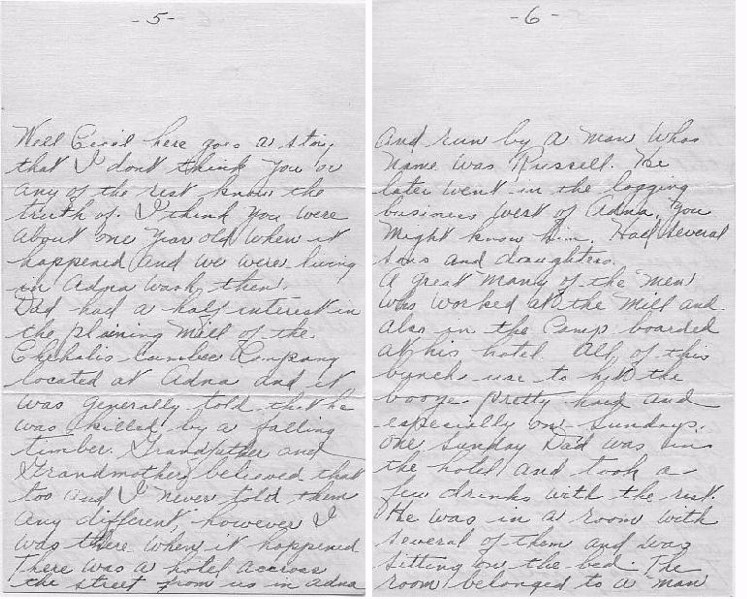 -5-
Well Cecil here goes a story
that I dont think you or
any of the rest know the
truth of. I think you were
about one year old when it
happened and we were living
in Adna Wash, then.
Dad had a half interest in
the plaining mill of the
Chehalis Lumber Company
located at Adna and it
was generally told that he
was killed by a falling
timber. Grandfather and
Grandmother believed that
too and I never told them
any different, however I
was there when it happened
There was a hotel accross
the street from us in Adna
-6-
and run by a man whos
name was Russell. He
later went in the logging
business west of Adna, you
might know him. Had several
sons and daughters.
A great many of the men
was worked at the mill and
also in the camp boarded
at his hotel. All of this
bunch use to hit the
booze pretty hard and
especially on Sundays.
One Sunday Dad was in
the hotel and took a
few drinks with the rest.
He was in a room with
several of them and was
sitting on the bed. The
room belonged to a man